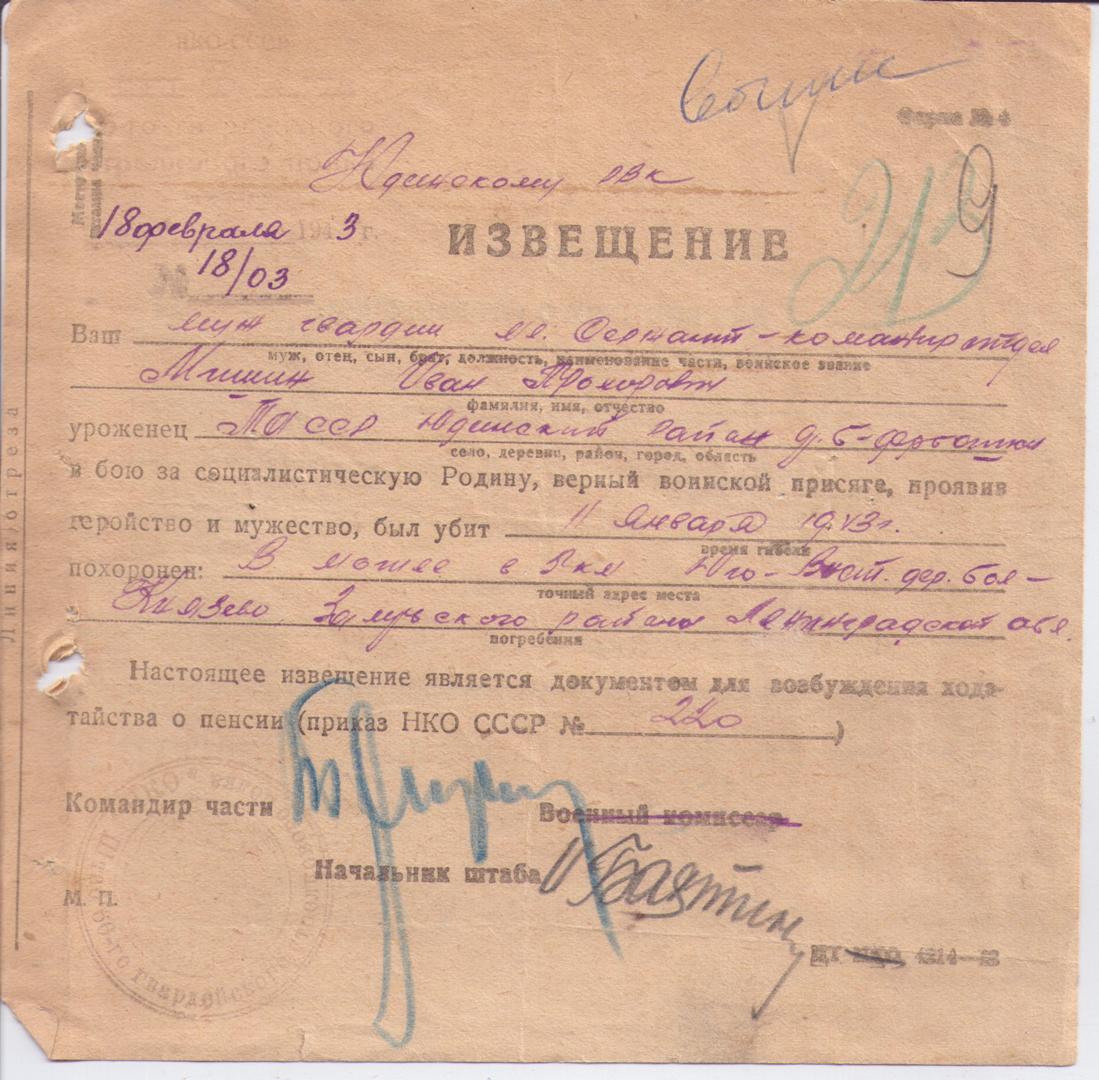 НКО СССР
Форма № 4
Юдинскому РВК
219
18 февраля 1943 г.
ИЗВЕЩЕНИЕ
№ 18/03
Ваш муж гвардии мл. Сержант - командир отдел
муж, отец, сын, брат, должность, наименование части, воинское звание
Мишин Иван Прохорович
фамилия, имя, отчество
уроженец ТАССР Юдинский район д. Б-
село, деревня, район, город, область
в бою за социалистическую Родину, верный воинской присяге, проявив
геройство и мужество, был убит 11 января 1943г.
время гибели
похоронен: В могиле в 2 км Юго-Вост. дер. боя-
точный адрес места
Князево, Залучского района Ленинградской обл.
погребения
Настоящее извещение является документом для возбуждения хода-
тайства о пенсии (приказ НКО СССР № 220)
Командир части
Военный комиссар
Начальник штаба Баятин
М. П.
60-го гвардейского
Линия отреза